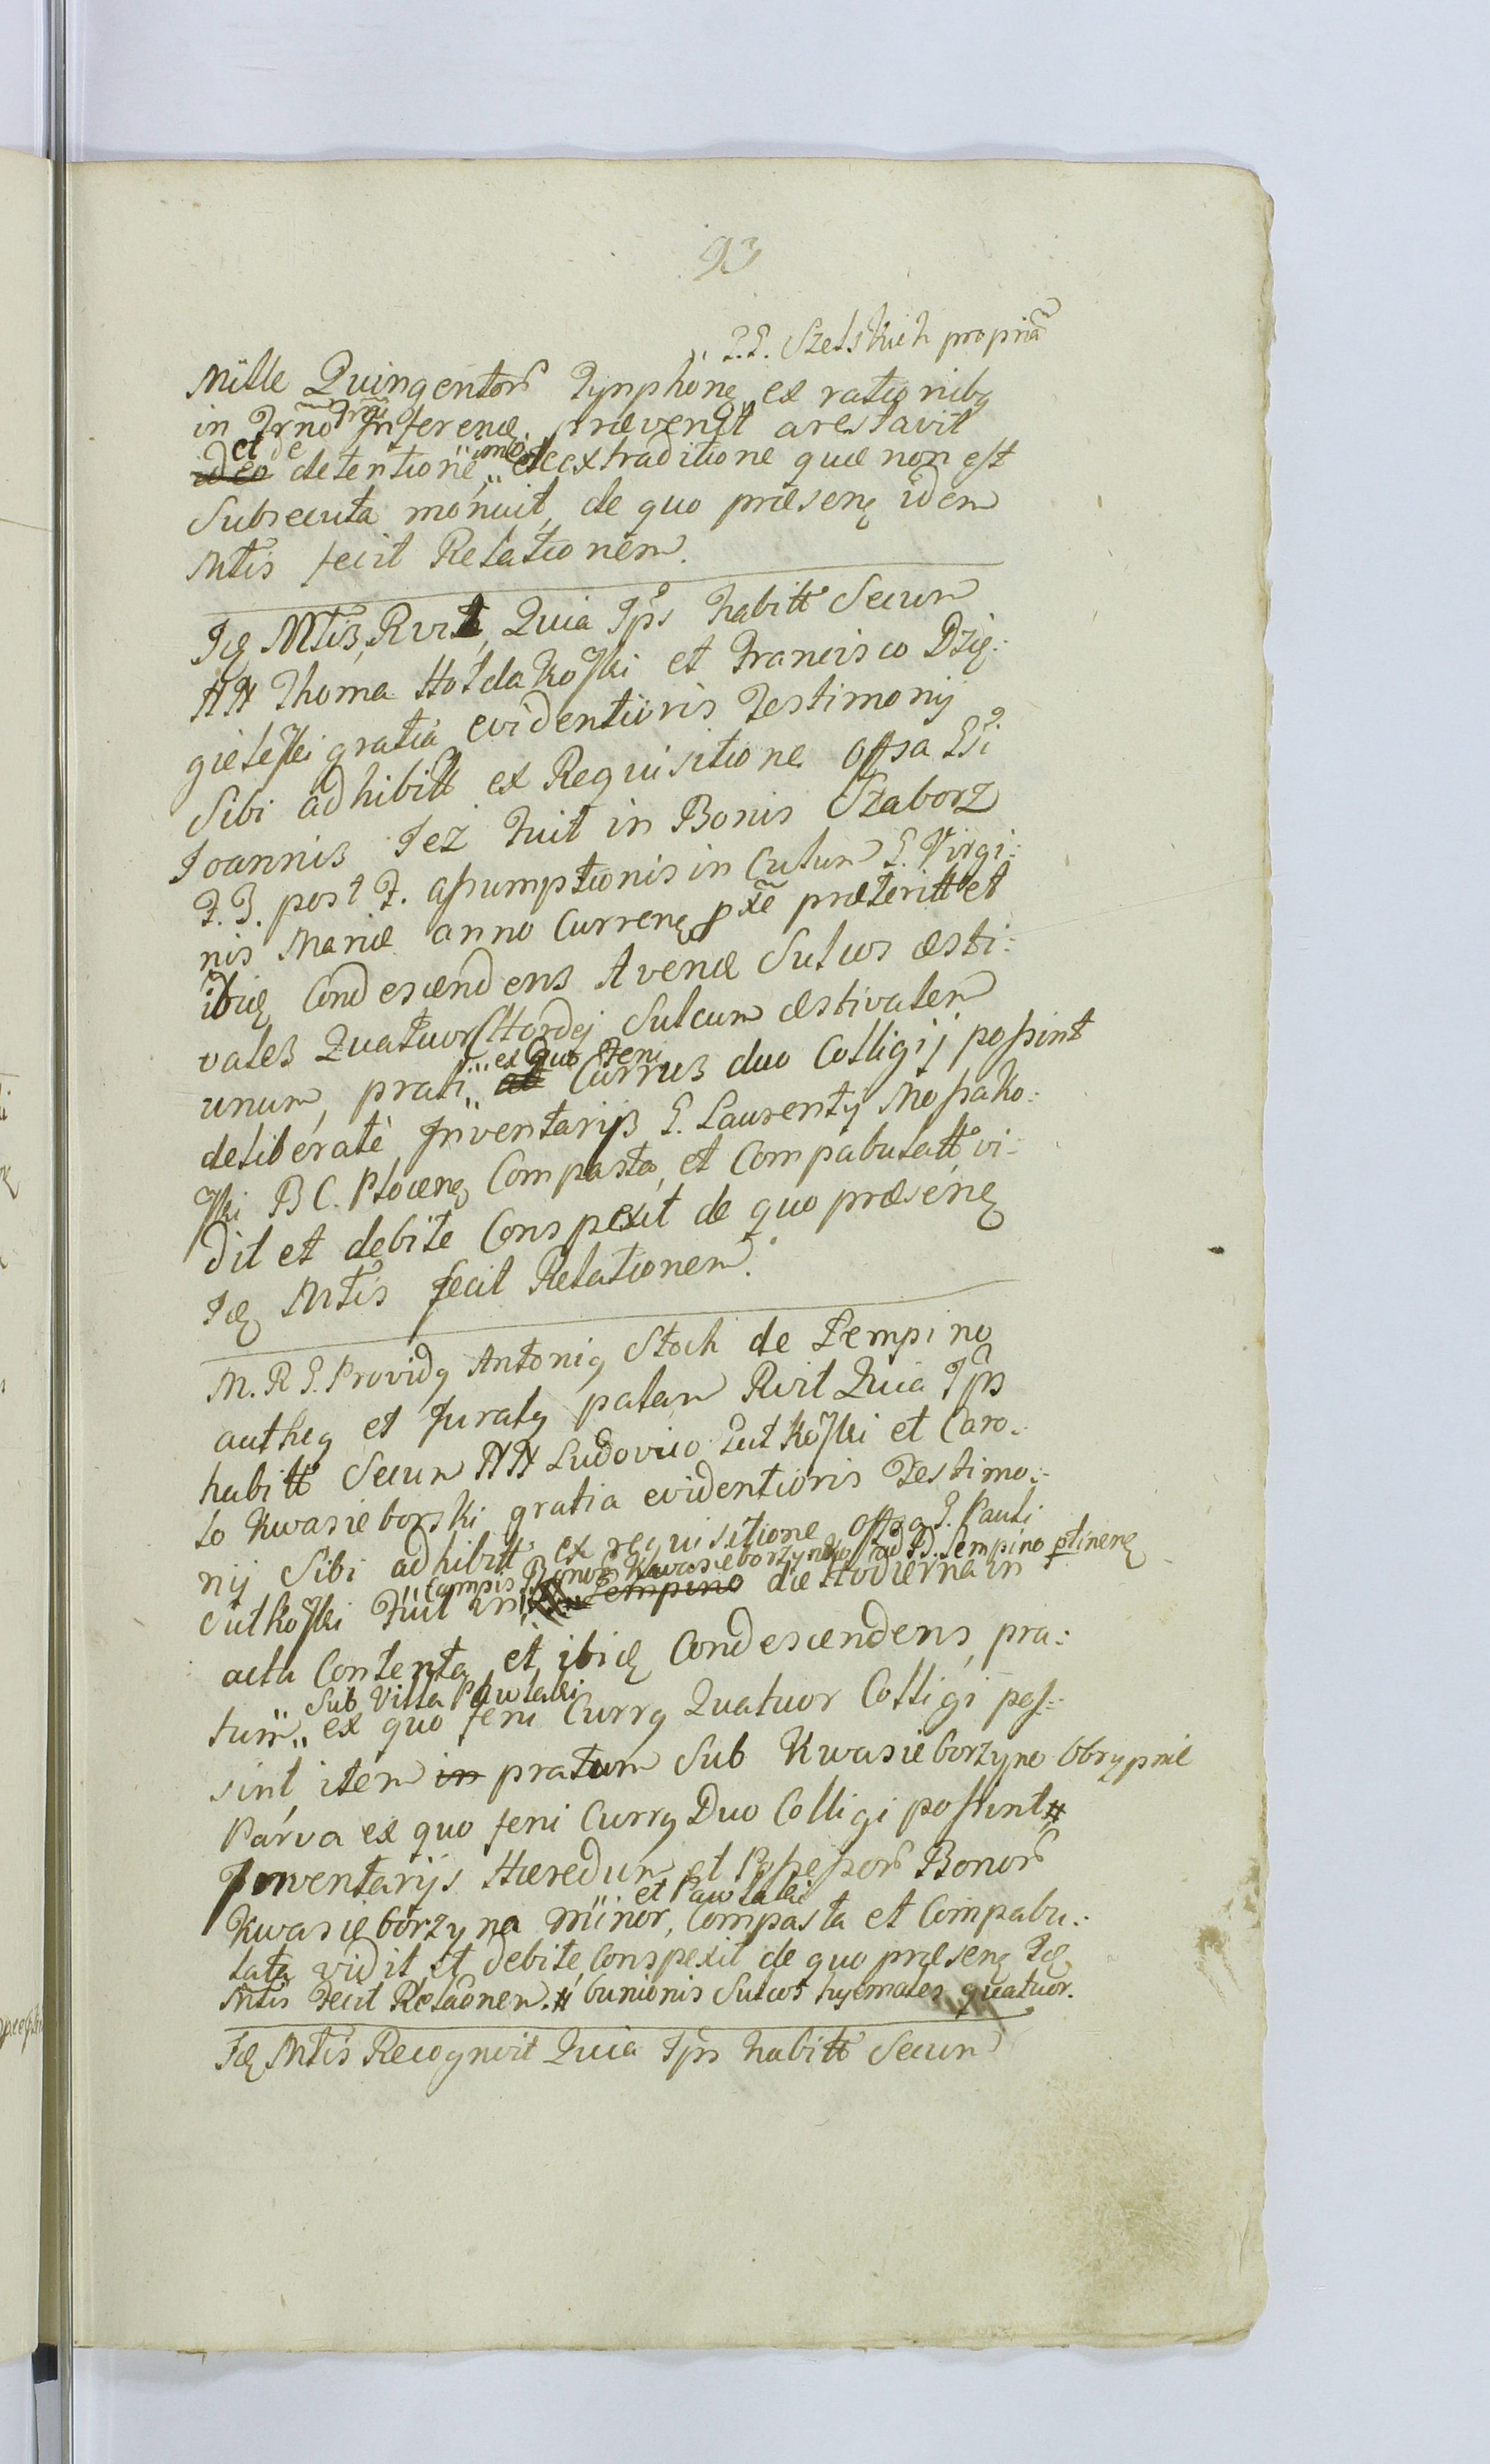 93
P.P. Szelskich propria
Mille Quingentor Tynphonę ex rationibq
in Trno Trai Inferenę prævenit arestavit
et de
ideo detentione imo et extraditione quæ non est
Subsecuta monuit, de quo præsenę idem
Mtis fecit Relationem.
Idę Mtis Rvit, Quia Ips habitt Secum
NN Thoma Hołdakoski et Francisco Dzię:
gieleski gratia evidentioris Testimonij
Sibi adhibitt ex Requisitione Offsa
Joannis Jez Fuit in Bonis Szaborz
F. 3. post F. assumptionis in Culum Virgi:
nis Mariæ anno Currenę pxe præteritt et
ibidę Condescendens Avenæ Sulcos æsti:
vales Quatuor Hordej Sulcum æstivalem
ex quo Feni
unum, prati at Currus duo Colligij possint
deliberatè Inventarijs G. Laurentij Mossako:
ski B C. Płocenę Compasta, et Compabulatt vi:
dit et debite Conspexit de quo præsenę
Idę Mtis fecit Relationem.
M. R G. Providq Antoniq Stoch de Lempino
autheq et Juratq palam Rvit Quia Ips
habitt Secum NN Ludovico Sutkoski et Caro:
lo Kwasieborski gratia evidentioris Testimo:
nij Sibi adhibitt ex requisitione Offsa G. Pauli
Campis Bonor Kwasieborzyno ad Lempino ptinenę
Sutkoski Fuit in Lempino die Hodierna in
actu Contenta et ibidę Condescendens, pra:
Sub Villa Pawłaki
tum ex quo feni Currq Quatuor Colligi pos:
sint item in pratum Sub Kwasieborzyno Obrypnie
Parva ex quo feni Currq Duo Colligi possint #
Inventarijs Hæredum et Possessor Bonor
et Pawłaki
Kwasieborzyna minor, Compasta et Compabu:
lata vidit et debite Conspexit de quo præsenę Idę
Mtis Fecit Relaonem. # bunionis Sulcos hyemales quatuor.
Idę Mtis Recognovit Quia Ips habitt Secum